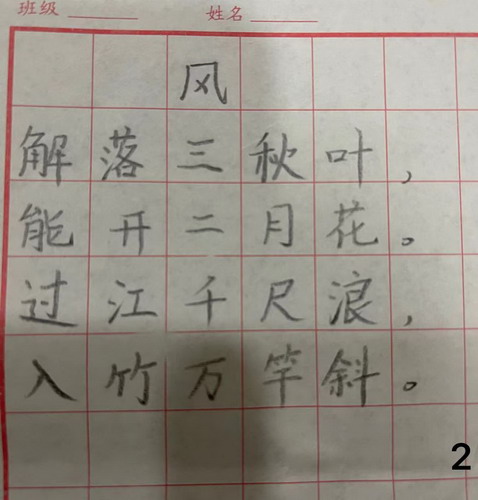 班级 姓名
风
解落三秋叶，
能开二月花。
过江千尺浪，
入竹万竿斜。
2